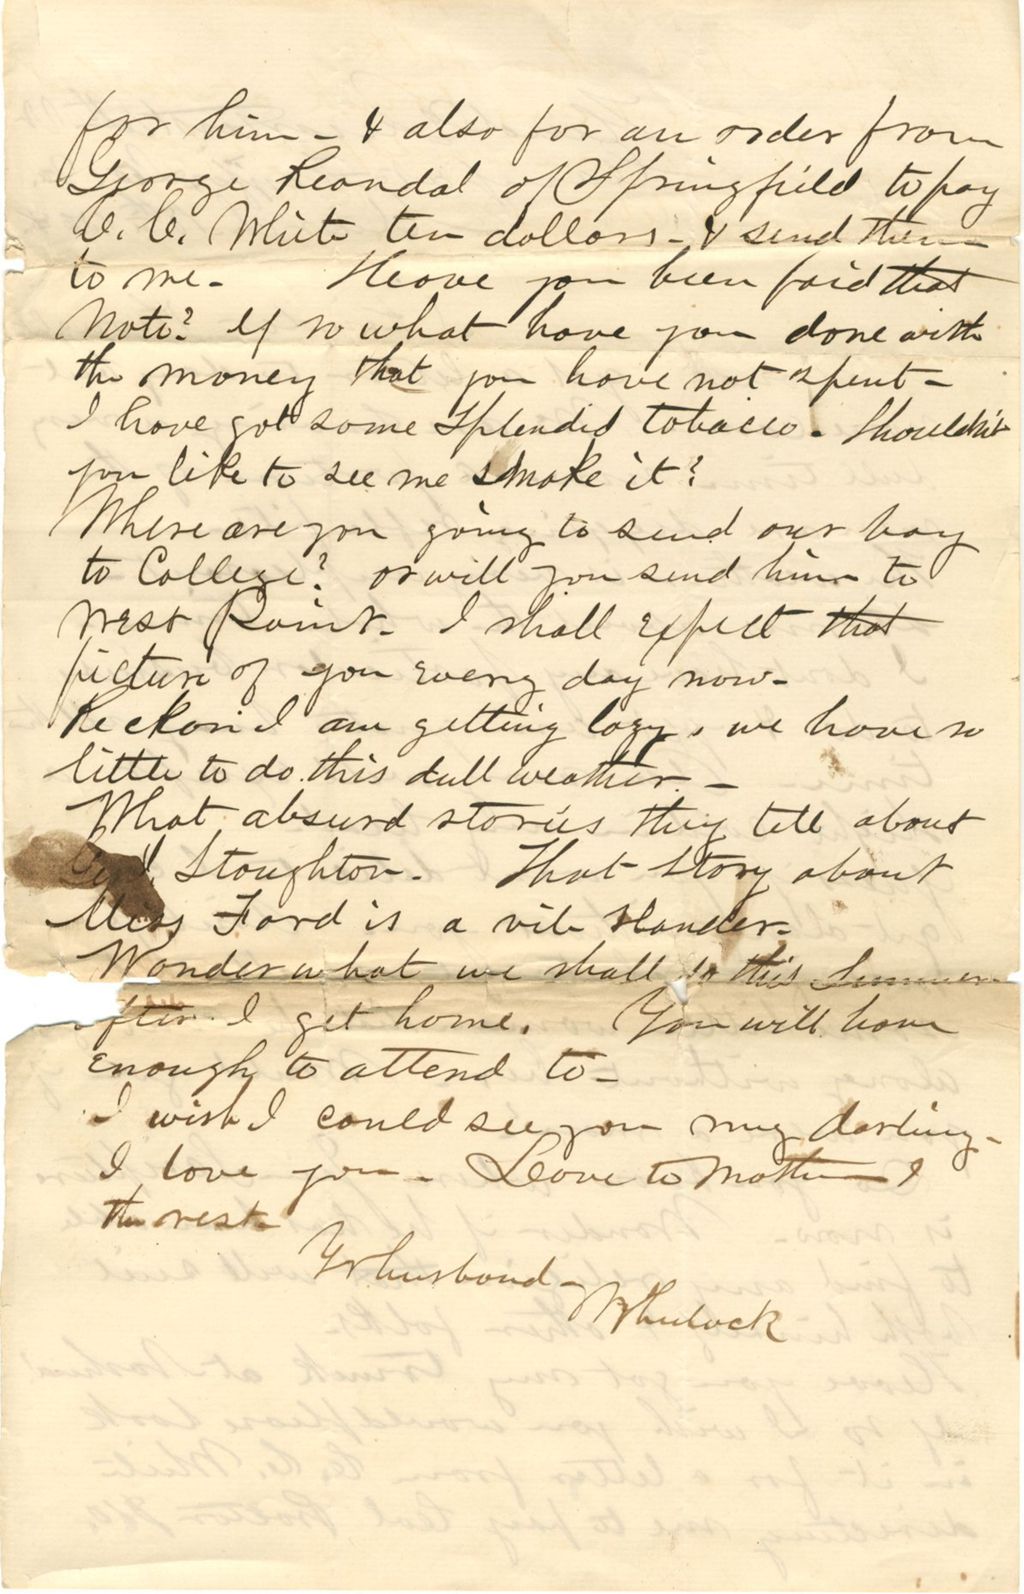 for him - & also for an order from
George Randal of Springfield to pay
C. C. White ten dollars - & send them
to me. Have you been paid that
Note? If so what have you done with
the money that you have not spent -
I have got some splendid tobacco. Shouldn't
you like to see me smoke it?
Where are you going to send our boy
to College? or will you send him to
West Point. I shall expect that
picture of you every day now -
Reckon I am getting lazy, we have so
little to do this dull weather. -
What absurd stories they tell about
Genl. Stoughton. That story about
Miss Ford is a vile slander -
Wonder what we shall do this Summer
after I get home. You will have
enough to attend to -
I wish I could see you my darling -
I love you - Love to Mother &
the rest
Yr husband -